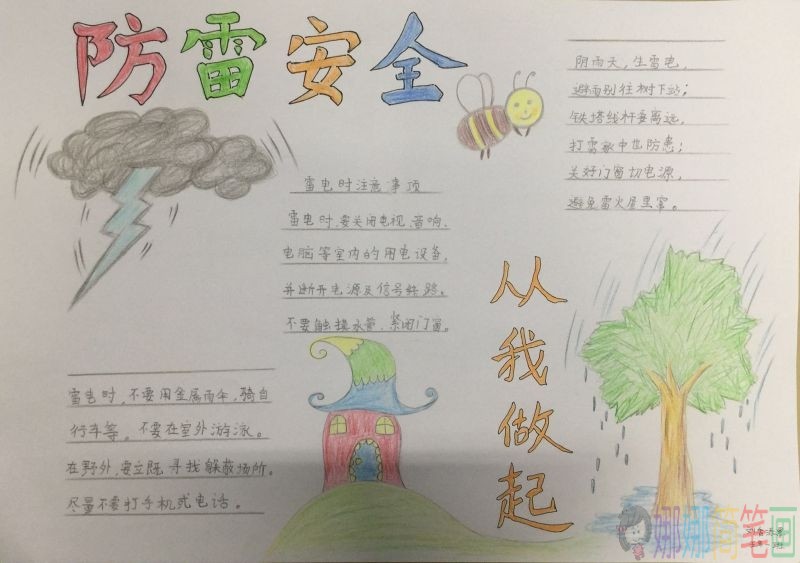 防雷安全
阴雨天,生雷电,
避雨别往树下站;
铁塔线杆要离远,
打雷家中也防患;
关好门窗切电源,
避免雷火屋里窜。
雷电时注意事项
雷电时,要关闭电视、音响、
电脑等室内的用电设备,
并断开电源及信号线路。
不要触摸水管、紧闭门窗。
从我做起
雷电时,不要用金属雨伞,骑自
行车等。不要在室外游泳。
在野外,要立既寻找躲蔽场所。
尽量不要打手机或电话。
娜娜简笔画